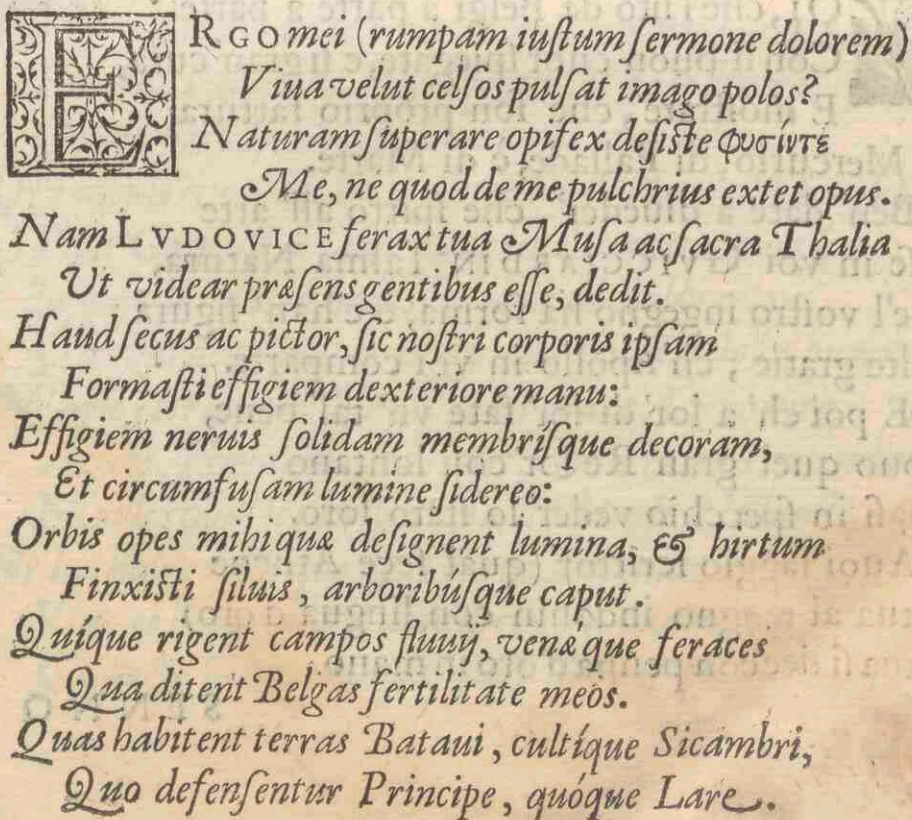 ERGO mei (rumpam iuſtum ſermone dolorem)
Viua velut celſos pulſat imago polos?
Naturam ſuperare opifex deſiſte φυσίντε
Me, ne quod de me pulchrius extet opus.
Nam LVDOVICE ferax tua Muſa ac ſacra Thalia
Ut videar præſens gentibus eſſe, dedit.
Haud ſecus ac pictor, ſic noſtri corporis ipſam
Formaſti effigiem dexteriore manu:
Effigiem neruis ſolidam membriſque decoram,
Et circumfuſam lumine ſidereo:
Orbis opes mihi quæ deſignent lumina, & hirtum
Finxiſti ſiluis, arboribúſque caput.
Quíque rigent campos fluuij, venǽque feraces
Qua ditent Belgas fertilitate meos.
Quas habitent terras Bataui, cultíque Sicambri,
Quo defenſentur Principe, quóque Lare.